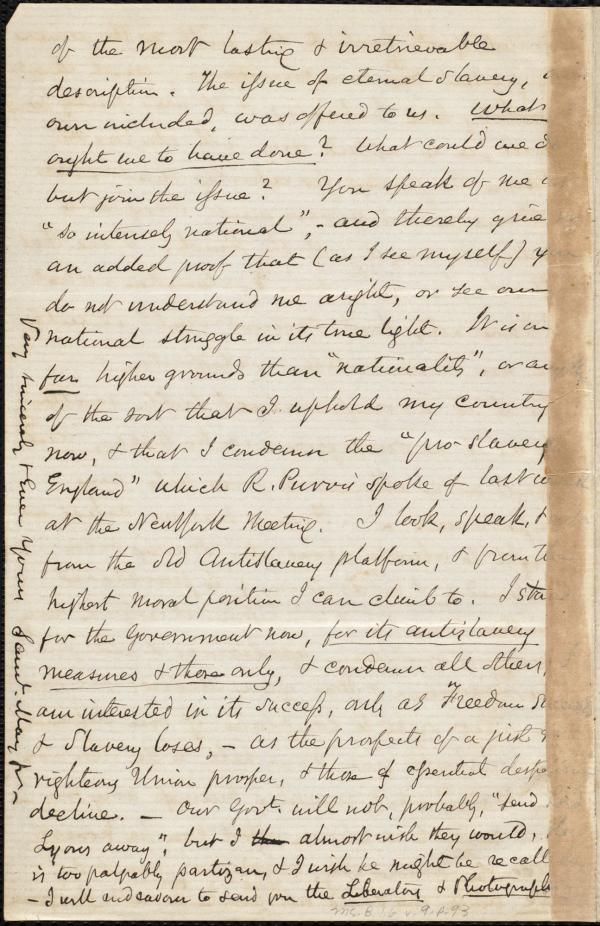 of the most lasting & irretrievable
description. The issue of eternal slavery,
own included, was offered to us. What
ought we to have done? What could we
but join the issue? You speak of me
"so intensely national", - and thereby give
an added proof that (as I see myself)
do not understand me aright, or see our
national struggle in its true light. It is on
far higher grounds than "nationality", or
of the sort that I uphold my country
now, & that I condemn the "pro-slavery
England" which R. Purvis spoke of last
at the New York Meeting. I look, speak, &
from the old Antislavery platform, & from
highest moral position I can climb to. I
for the Government now, for its antislavery
measures & those only, & condemn all others,
am interested in its success, only as Freedom
& Slavery loses, - as the prospects of a just &
righteous Union prosper, & those of essential
decline. - Our Govt. will not, probably, "send
Lyons away", but I almost wish they would,
is too palpably partizan, & I wish he might be
- I will endeavour to send you the Liberators & Photographs
Very sincerely & ever Yours Saml. May Jr.